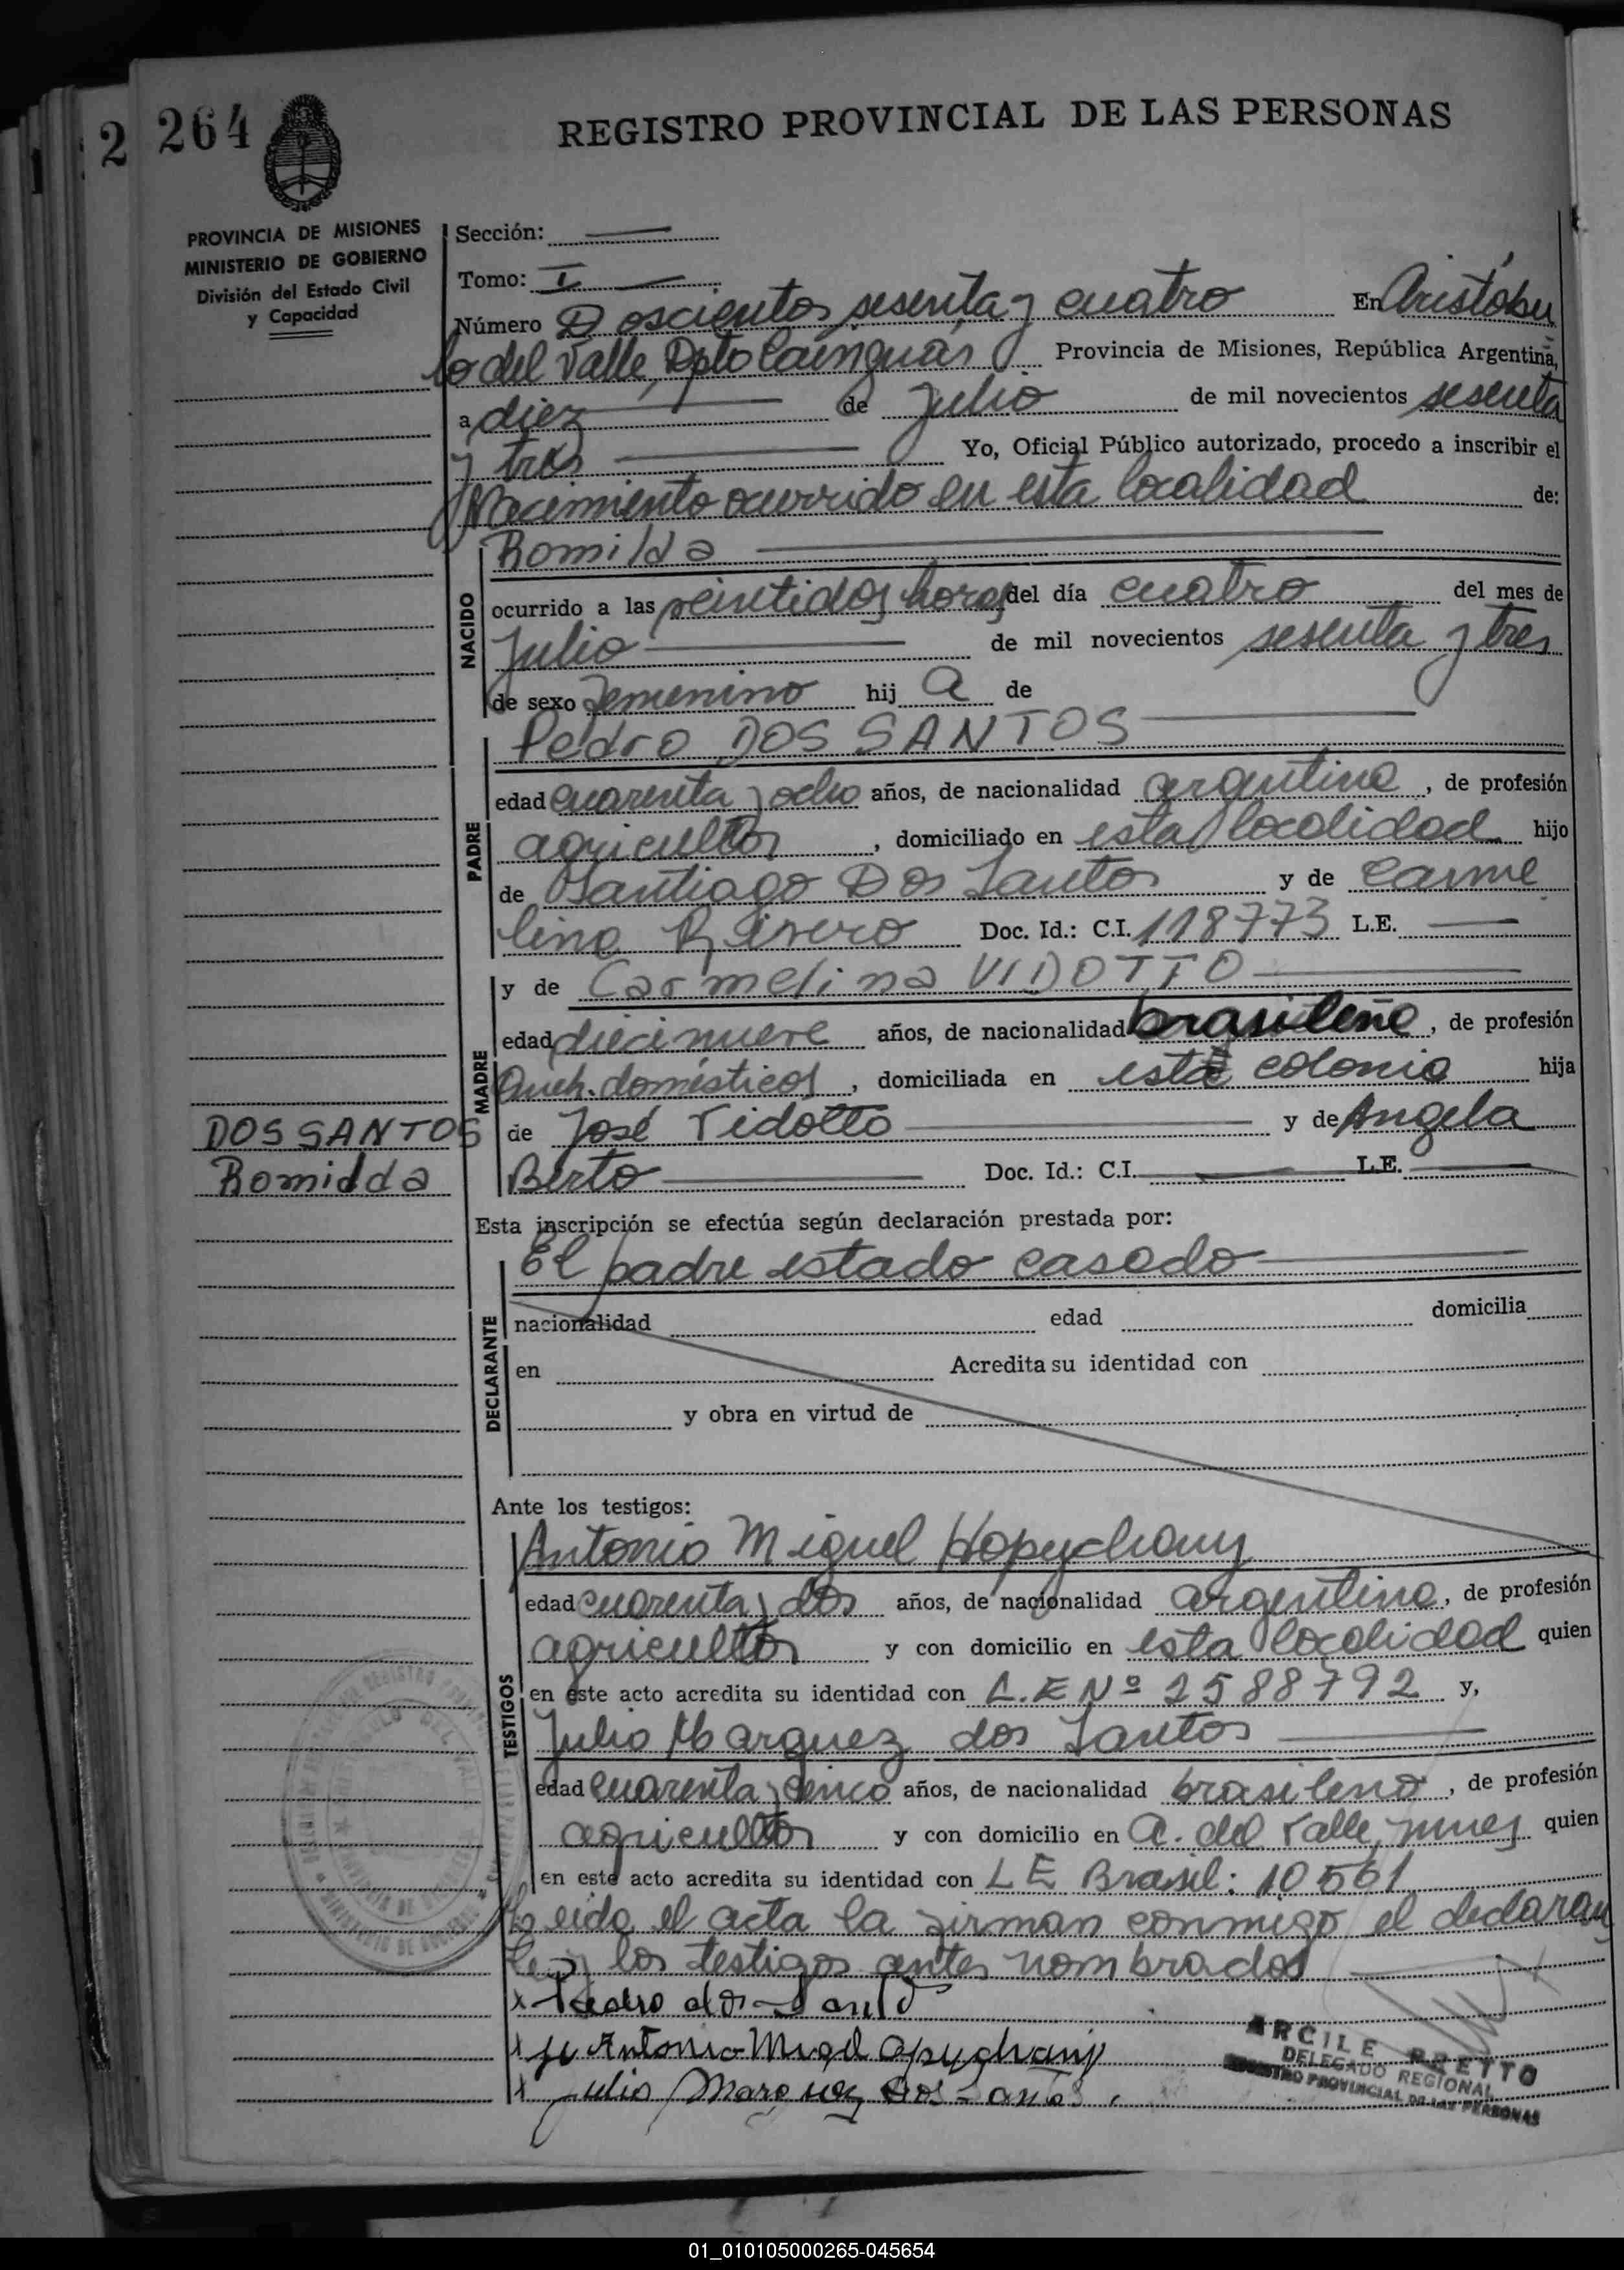 2 264
REGISTRO PROVINCIAL DE LAS PERSONAS
PROVINCIA DE MISIONES
MINISTERIO DE GOBIERNO
División del Estado Civil
y Capacidad
Sección:
Tomo: I
Número Doscientos sesenta y cuatro En Aristóbu
lo del Valle, Dpto Cainguás Provincia de Misiones, República Argentina,
a diez de Julio de mil novecientos sesenta
y tres Yo, Oficial Público autorizado, procedo a inscribir el
Nacimiento ocurrido en esta localidad de:
NACIDO
Romilda
ocurrido a las veintidos horas del día cuatro del mes de
Julio de mil novecientos sesenta y tres
de sexo femenino hij a de
PADRE
Pedro DOS SANTOS
edad cuarenta y ocho años, de nacionalidad argentina, de profesión
agricultor, domiciliado en esta localidad hijo
de Santiago Dos Santos y de Carme
lina Rivero Doc. Id.: C.I. 118773 L.E.
MADRE
y de Carmelina VIDOTTO
edad diecinueve años, de nacionalidad brasileña, de profesión
Queh. domésticos, domiciliada en esta colonia hija
DOS SANTOS
Romilda
de José Vidotto y de Angela
Berto Doc. Id.: C.I. L.E.
Esta inscripción se efectúa según declaración prestada por:
DECLARANTE
El padre estado casado
nacionalidad edad domicilia
en Acredita su identidad con
y obra en virtud de
Ante los testigos:
TESTIGOS
Antonio Miguel Hopychany
edad cuarenta y dos años, de nacionalidad argentina, de profesión
agricultor y con domicilio en esta localidad quien
en este acto acredita su identidad con L.E Nº 2588792 y,
Julio Marquez dos Santos
edad cuarenta y cinco años, de nacionalidad brasileno, de profesión
agricultor y con domicilio en A. del Valle, mnes quien
en este acto acredita su identidad con LE Brasil: 10561
Leida el acta la firman conmigo el declaran
te y los testigos antes nombrados
x Pedro dos Santo
x Antonio Migel Opychany
x Julio Marquez dos Santos
ARCILE PRETTO
DELEGADO REGIONAL
REGISTRO PROVINCIAL DE LAS PERSONAS
01_010105000265-045654